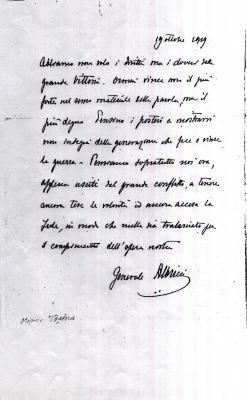 19 ottobre 1919
Abbiamo non solo i diritti ma i doveri della
grande Vittoria. Ormai vince non il più
forte nel senso materiale della parola, ma il
più degno
non indegni della generazione che fece e vinse
la guerra - Pensiamo sopratutto noi ora,
appena usciti dal grande conflitto, a tenere
ancora tese le volontà ed ancora accesa la
fede, in modo che nulla sia tralasciato per
il compimento dell'opera nostra
Generale Albricci